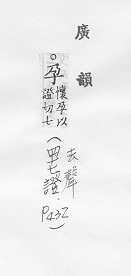 廣韻
。孕懷孕以
證切七
去聲
(四十七證.P432)